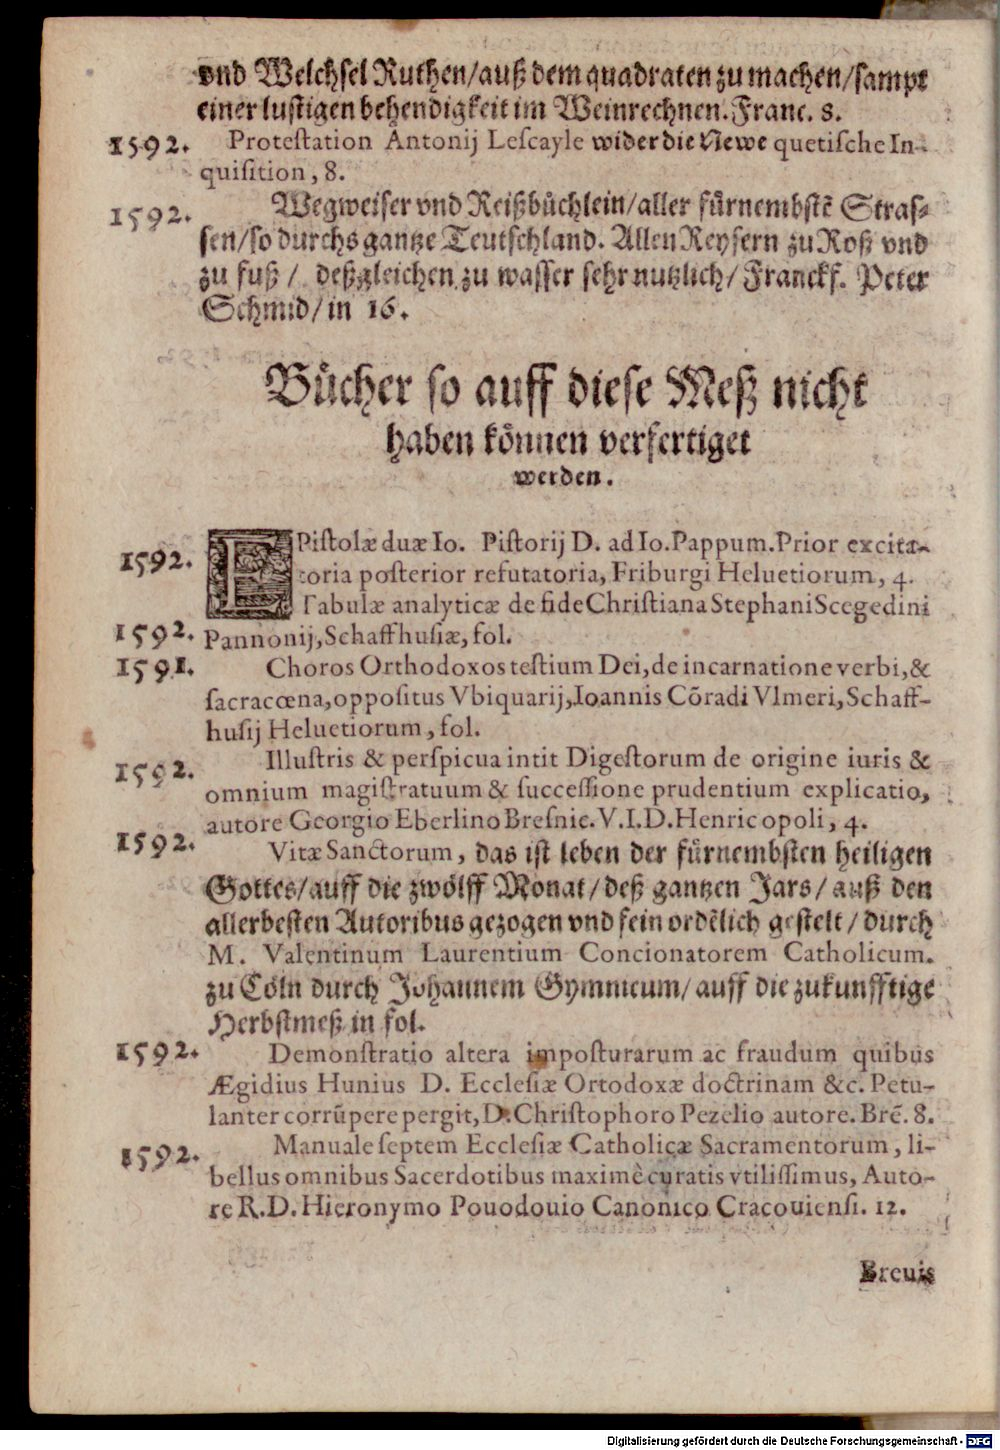 vnd Welchsel Ruthen/auß dem quadraten zu machen/sampt
einer lustigen behendigkeit im Weinrechnen. Franc. 8.
1592. Protestation Antonij Lescayle wider die Newe quetische In-
quisition, 8.
1592. Wegweiser vnd Reißbůchlein/aller fůrnembstẽ Stras-
sen/so durchs gantze Teutschland. Allen Reysern zu Roß vnd
zu fuß/ deßgleichen zu wasser sehr nutzlich/ Franckf. Peter
Schmid/in 16.
Bůcher so auff diese Meß nicht
haben kőnnen verfertiget
werden.
1592. EPistolæ duæ Io. Pistorij D. ad Io. Pappum. Prior excita-
toria posterior refutatoria, Friburgi Heluetiorum, 4.
Tabulæ analyticæ de fide Christiana Stephani Scegedini
1592. Pannonij, Schaffhusiæ, fol.
1591. Choros Orthodoxos testium Dei, de incarnatione verbi, &
sacracœna, oppositus Vbiquarij, Ioannis Cõradi Vlmeri, Schaff-
husij Heluetiorum, fol.
1592. Illustris & perspicua in tit Digestorum de origine iuris &
omnium magistratuum & successione prudentium explicatio,
autore Georgio Eberlino Bresnic. V.I.D. Henricopoli, 4.
1592. Vitæ Sanctorum, das ist leben der fůrnembsten heiligen
Gottes/auff die zwőlff Monat/deß gantzen Jars/ auß den
allerbesten Autoribus gezogen vnd fein ordẽlich gestelt/ durch
M. Valentinum Laurentium Concionatorem Catholicum.
zu Cőln durch Johannem Gymnicum/ auff die zukunfftige
Herbstmeß in fol.
1592. Demonstratio altera imposturarum ac fraudum quibus
Ægidius Hunius D. Ecclesiæ Ortodoxæ doctrinam &c. Petu-
lanter corrũpere pergit, D. Christophoro Pezelio autore. Brẽ. 8.
1592. Manuale septem Ecclesiæ Catholicæ Sacramentorum, li-
bellus omnibus Sacerdotibus maximè curatis vtilissimus, Auto-
re R.D. Hieronymo Pouodouio Canonico Cracouiensi. 12.
Breuis
Digitalisierung gefördert durch die Deutsche Forschungsgemeinschaft - DFG